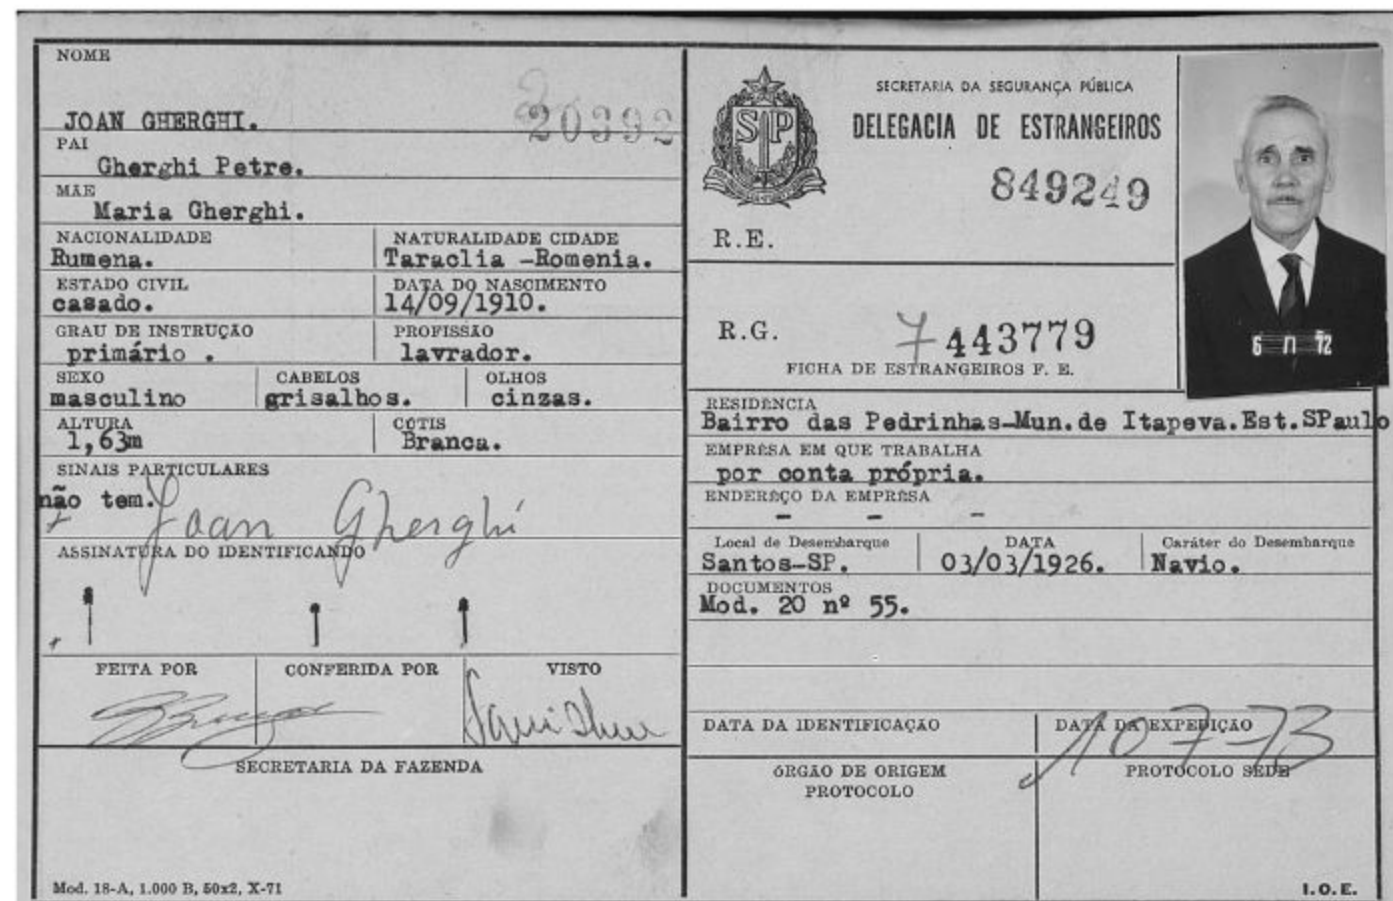 NOME
20392
JOAN GHERGHI.
PAI
Gherghi Petre.
MÃE
Maria Gherghi.
NACIONALIDADE NATURALIDADE CIDADE
Rumena. Taraclia -Romenia.
ESTADO CIVIL DATA DO NASCIMENTO
casado. 14/09/1910.
GRAU DE INSTRUÇÃO PROFISSÃO
primário . lavrador.
SEXO CABELOS OLHOS
masculino grisalhos. cinzas.
ALTURA CÚTIS
1,63m Branca.
SINAIS PARTICULARES
não tem.
Joan Gherghi
ASSINATURA DO IDENTIFICANDO
FEITA POR CONFERIDA POR VISTO
SECRETARIA DA FAZENDA
Mod. 18-A, 1.000 B, 50x2, X-71
SP
SECRETARIA DA SEGURANÇA PÚBLICA
DELEGACIA DE ESTRANGEIROS
849249
R.E.
R.G. 7 443779
FICHA DE ESTRANGEIROS F. E.
RESIDÊNCIA
Bairro das Pedrinhas-Mun.de Itapeva.Est.SPaulo
EMPRÊSA EM QUE TRABALHA
por conta própria.
ENDERÊÇO DA EMPRÊSA
- - -
Local de Desembarque DATA Caráter do Desembarque
Santos-SP. 03/03/1926. Navio.
DOCUMENTOS
Mod. 20 nº 55.
DATA DA IDENTIFICAÇÃO DATA DA EXPEDIÇÃO
10-7-73
ÓRGÃO DE ORIGEM PROTOCOLO SEDE
PROTOCOLO
I.O.E.